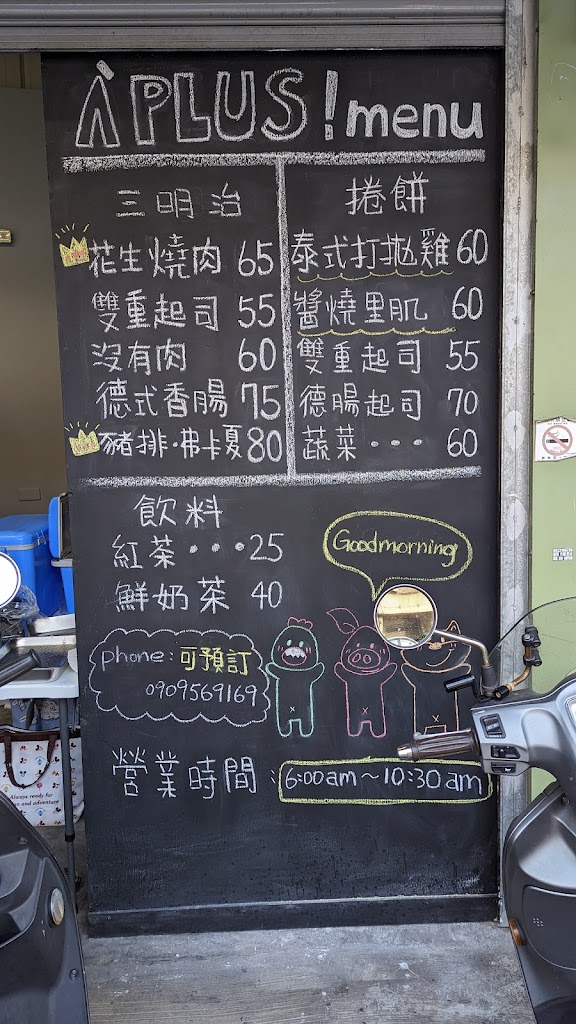 À PLUS! menu
三明治
花生燒肉 65
雙重起司 55
沒有肉 60
德式香腸 75
豬排·弗卡夏 80
捲餅
泰式打拋雞 60
醬燒里肌 60
雙重起司 55
德腸起司 70
蔬菜··· 60
飲料
紅茶···25
鮮奶茶 40
Goodmorning
phone:可預訂
0909569169
營業時間:6:00am~10:30am
Always ready for
fun and adventure